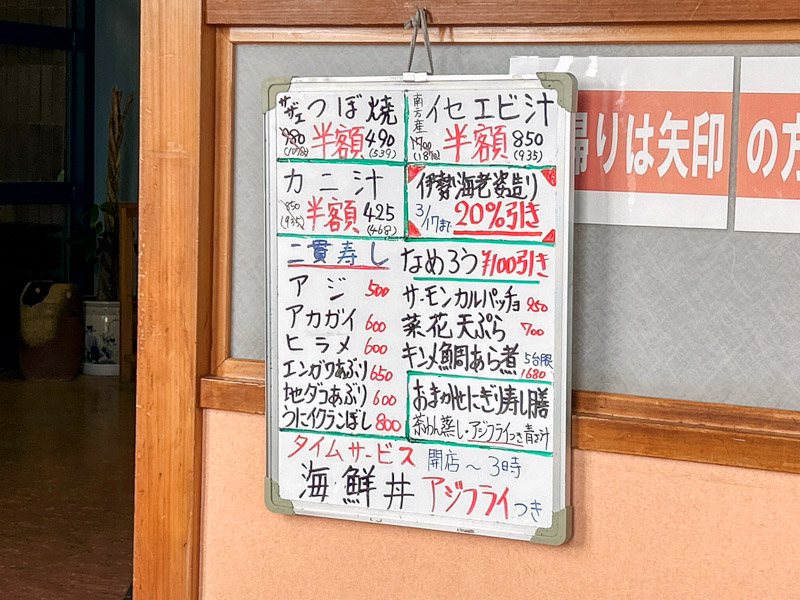 サザエ つぼ焼
980 (1078) 半額 490 (539)
南方産 イセエビ汁
1700 (1870) 半額 850 (935)
カニ汁
850 (935) 半額 425 (468)
伊勢海老姿造り
3/17まで 20%引き
二貫寿し
アジ 500
アカガイ 600
ヒラメ 600
エンガワあぶり 650
地ダコあぶり 600
うにイクラこぼし 800
なめろう ¥100引き
サーモンカルパッチョ 950
菜花天ぷら 700
キンメ鯛あら煮 5台限
1680
おまかせにぎり寿し膳
茶わん蒸し・アジフライつき 青さ汁
タイムサービス 開店～3時
海鮮丼 アジフライつき
帰りは矢印
の方